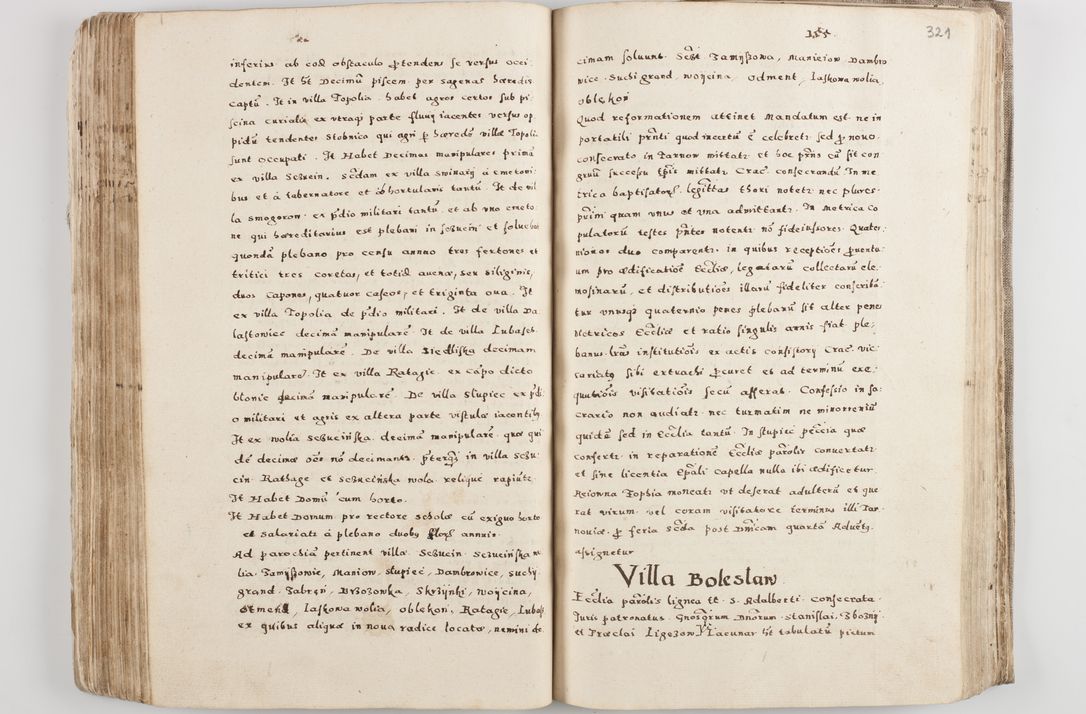 inferius ab eod obstaculo ꝓtenden se versus occi
dentem. It ht Decimū piscem per sagenas hæredis
captū. It in villa Topolia habet agros certos sub pi
scina curialis ex utraq; parte fluuy iacentes versus op
pidū tendentes Stobnica qui agri ꝑ hæredē villæ Topoli
sunt occupati. It Habet Decimas manipulares primā
ex villa Sczucin. scdam ex villa Swinary á cmetoni
bus et á tabernatore et ab hortulanis tantū. It de vil
la Smogorow ex pdio militari tantū et ab uno cmeto
ne qui hæreditarius est plebani in Sczucin et soluebat
quondā plebano pro censu annuo tres fertones et
tritici tres coretos, et totid auenæ, seu siliginis,
duos capones, quatuor caseos, et triginta oua. It
ex villa Topolia de pdio militari. It de villa Da
lastowice decimā manipularē It de villa Lubasch
decimā manipularē. De villa Siedliska decimam
manipularē. It ex villa Ratagie ex cāpo dicto
blonie decimā manipularē. De villa Slupiec ex pdi
o militari et agris ex altera parte vistulæ iacentibq
It ex wolia sczucińska decimā manipularē quæ qui
dē decimæ oēs nō decimantr. pterq in villa Sczu
cin Rathage et Sczucińska wola reliquæ rapiūtr
It Habet Domū cum horto.
It Habet Domum pro rectore scholæ cū exiguo horto
et salariatr á plebano duobq flor annuis
Ad parochiā pertinent villæ Sczucin Sczucińska wo
lia. Zamyszowie, Maniow. Slupiec, Dambrowice, Suchy
grand. Zabreń, Brzozowka, Skrzynki, woycina,
Otment, Laskowa wolia, oblekon. Ratagie, Lubasz
ex quibus aliquæ in noua radice locatæ, nemini de
321
cimam soluunt. Sczt Zamyszowa, Maniciow Dambro
wice. Suchi grand, woycina, odment, laskowa wolia
oblekon
Quod reformationem attinet Mandatum est ne in
portatili pnti quod incertū ē celebretr sed ꝓ nouo
consecrato in Tarnow mittatr et hoc prns cū sit con
gruū successu tpis mittatr Crac. consecrandū In me
trica baptisator. legittas thori notetr nec plures
primi quam unus et una admittantr. In metrica co
pulatorū testes pntes notentr nō fideiussores. Quater
niones duo comparentr in quibus receptiōes ꝓuentu
um pro ædificatiōe Eccliæ, legatarū collectarū ele
mosinarū, et distributiōes illarū fideliter conscribā
tur unusq; quaternio penes plebanū sit alter penes
Vitricos Eccliæ et ratio singulis annis fiat ple
banus lras institutiōis ex actis consistory Crac. vic
cariatq sibi extrachi ꝓcuret et ad terminū exe
qutiōis visitatiōis secū afferat. Confessio in sa
crario non audiatr nec turmatim ne minorenniū
quidē sed in Ecclia tantū. In stupiec peccia quæ
confertr in reparationē Eccliæ parolis conuertatr
et sine licentia Epali capella nulla ibi ædificetur
Reionna Zophia moneatr ut deserat adulterū et que
rat virum. vel coram visitatore terminus illi Tar
nouiæ ꝓ feria scda post Dnicam quartā Aduētq
assignetur
Villa Boleslaw
Ecclia parolis lignea tt. S. Adalberti consecrata
Iuris patronatus Gnosorum Dnorum Stanislai, Zbozny
et Præclai Ligezow Lacunar ht tabulatū pictum